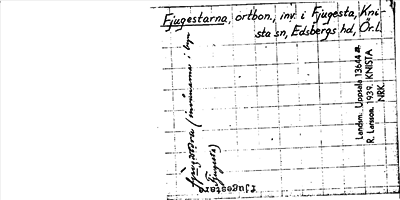 Fjugestarna, ortbon., inv. i Fjugesta, Kni-
sta sn, Edsbergs hd, Ör.l.
(innevånarna i byn
Fjugesta)
Landsm. Uppsala 13644
R. Larsson 1939. KNISTA
NRK.
fjugestara